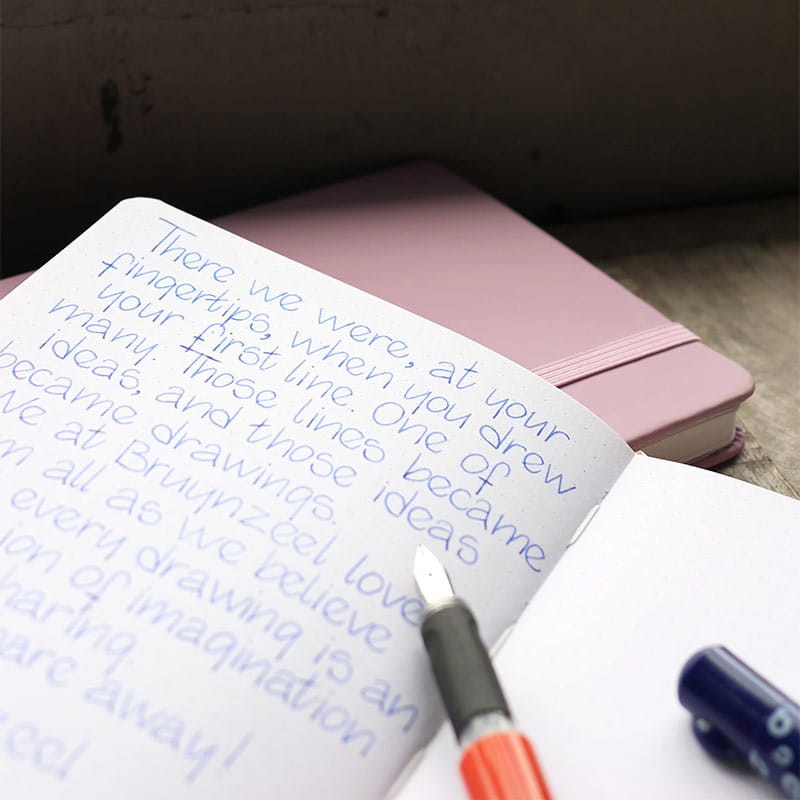 There we were, at your
fingertips, when you drew
your first line. One of
many. Those lines became
ideas, and those ideas
became drawings.
We at Bruynzeel love
m all as we believe
every drawing is an
ion of imagination
haring.
are away!
eel